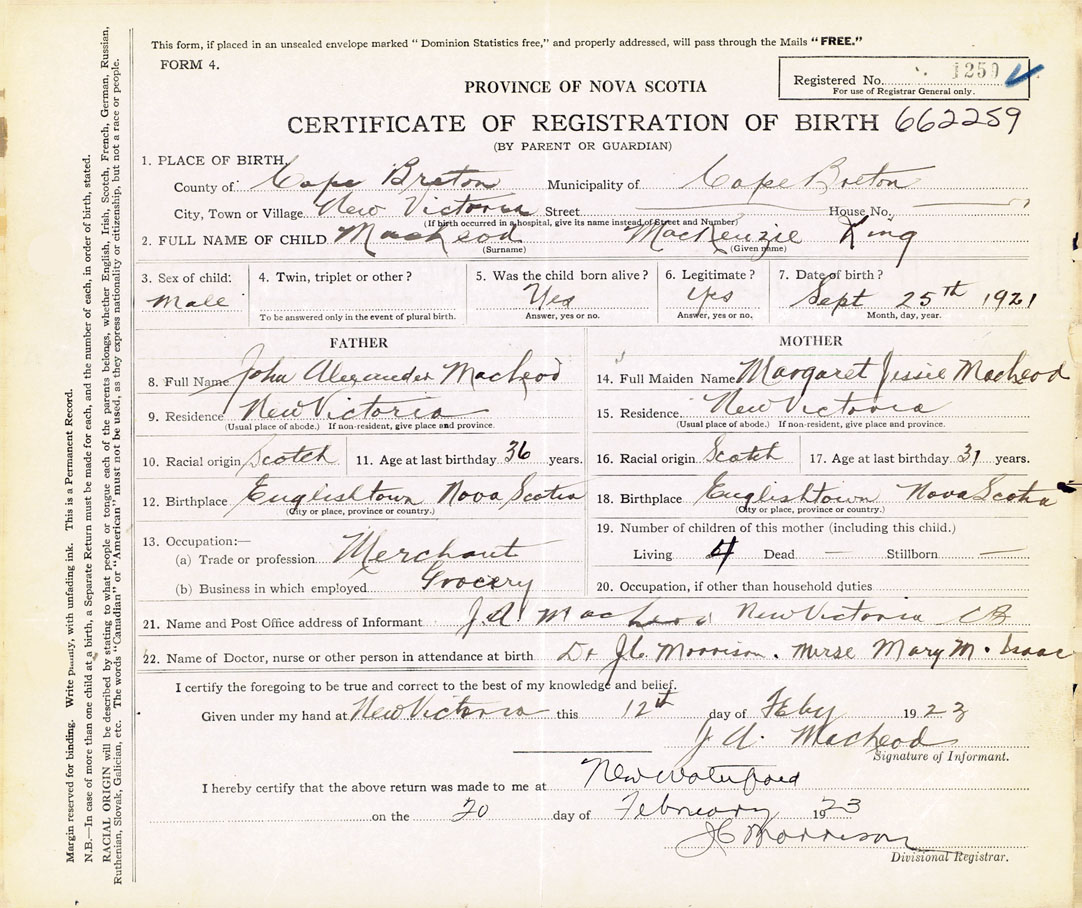 This form, if placed in an unsealed envelope marked "Dominion Statistics free," and properly addressed, will pass through the Mails "FREE."
FORM 4.
Registered No. 1259
For use of Registrar General only.
PROVINCE OF NOVA SCOTIA
CERTIFICATE OF REGISTRATION OF BIRTH 662259
(BY PARENT OR GUARDIAN)
1. PLACE OF BIRTH.
County of Cape Breton Municipality of Cape Breton
City, Town or Village New Victoria Street House No.
(If birth occurred in a hospital, give its name instead of Street and Number)
2. FULL NAME OF CHILD MacLeod MacKenzie King
(Surname) (Given name)
3. Sex of child: 4. Twin, triplet or other? 5. Was the child born alive? 6. Legitimate? 7. Date of birth?
Male Yes Yes Sept 25th 1921
To be answered only in the event of plural birth. Answer, yes or no. Answer, yes or no. Month, day, year.
FATHER
8. Full Name John Alexander MacLeod
9. Residence New Victoria
(Usual place of abode.) If non-resident, give place and province.
10. Racial origin Scotch 11. Age at last birthday 36 years.
12. Birthplace Englishtown Nova Scotia
(City or place, province or country.)
13. Occupation:—
(a) Trade or profession Merchant
(b) Business in which employed Grocery
MOTHER
14. Full Maiden Name Margaret Jessie MacLeod
15. Residence New Victoria
(Usual place of abode.) If non-resident, give place and province.
16. Racial origin Scotch 17. Age at last birthday 31 years.
18. Birthplace Englishtown Nova Scotia
(City or place, province or country.)
19. Number of children of this mother (including this child.)
Living 4 Dead — Stillborn —
20. Occupation, if other than household duties
21. Name and Post Office address of Informant J.A. MacLeod New Victoria CB
22. Name of Doctor, nurse or other person in attendance at birth Dr J.C. Morrison. Nurse Mary M. Isaac
I certify the foregoing to be true and correct to the best of my knowledge and belief.
Given under my hand at New Victoria this 12th day of Feby 1923
J A. MacLeod
Signature of Informant.
I hereby certify that the above return was made to me at New Waterford
on the 20 day of February 1923
JC Morrison
Divisional Registrar.
Margin reserved for binding. Write plainly, with unfading ink. This is a Permanent Record.
N.B.—In case of more than one child at a birth, a Separate Return must be made for each, and the number of each, in order of birth, stated.
RACIAL ORIGIN will be described by stating to what people or tongue each of the parents belongs, whether English, Irish, Scotch, French, German, Russian,
Ruthenian, Slovak, Galician, etc. The words "Canadian" or "American" must not be used, as they express nationality or citizenship, but not a race or people.